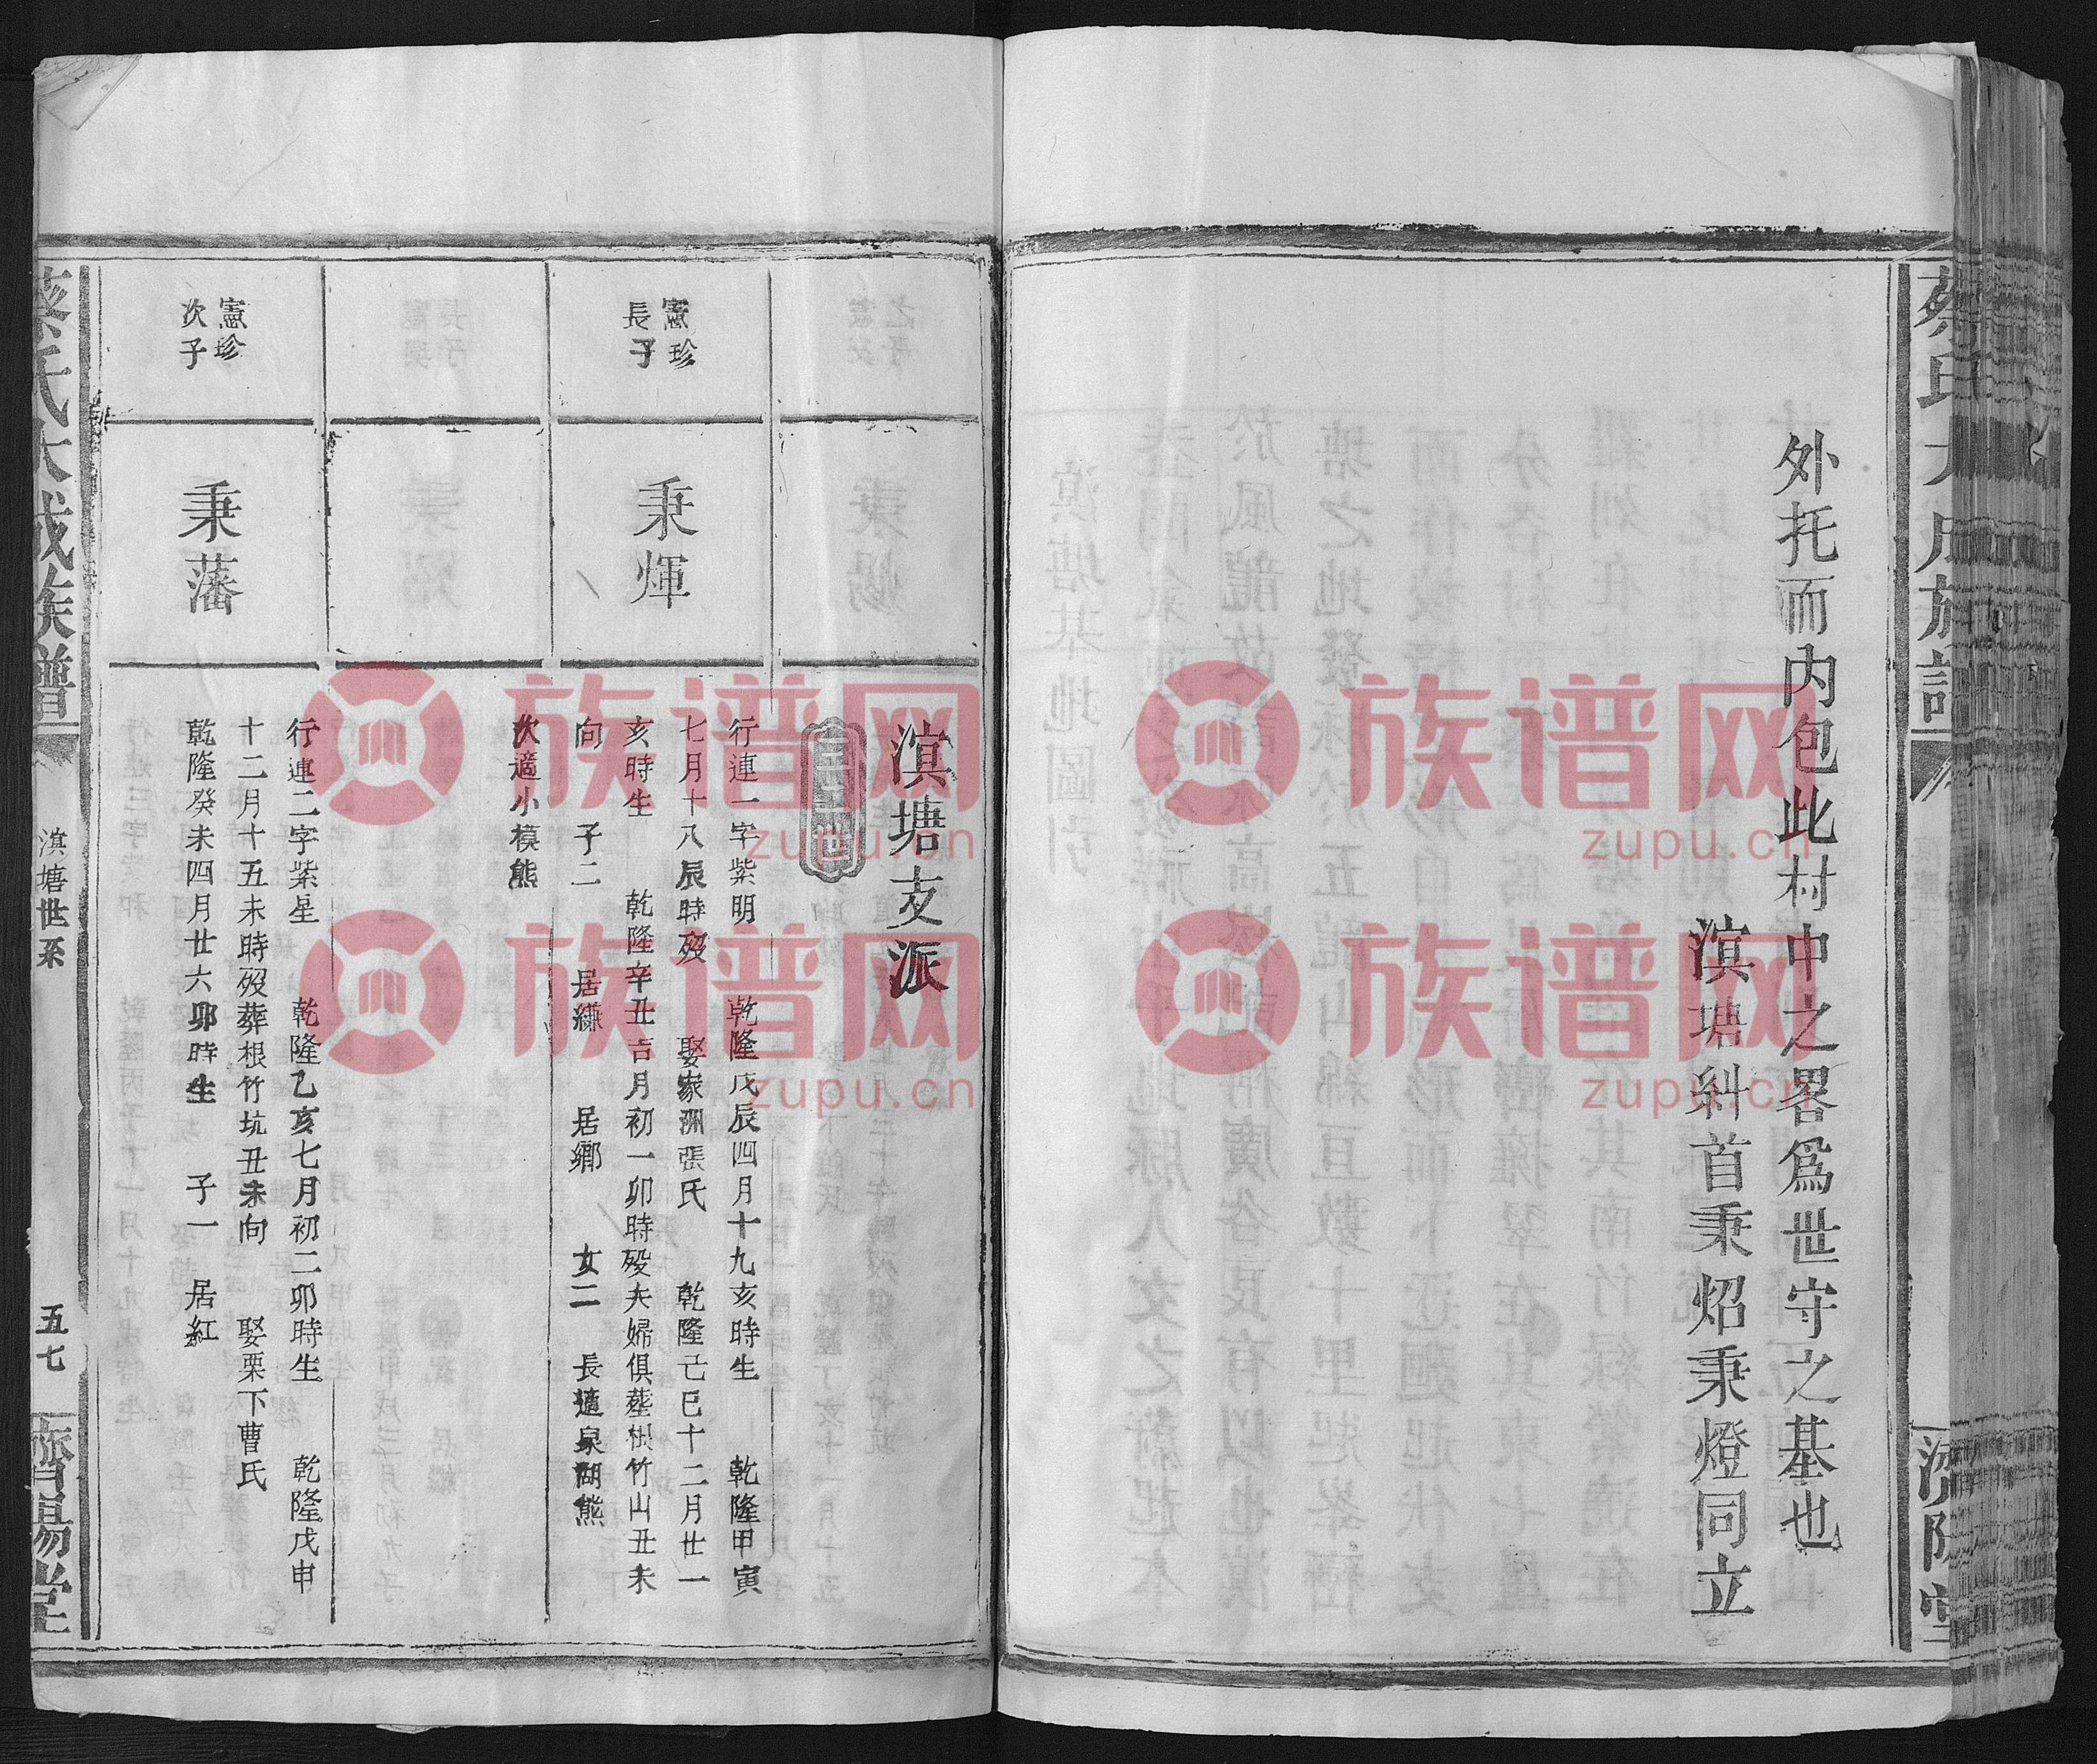 蔡氏大成族譜
濟陽堂
外托而内包此村中之畧爲世守之基也
滨塘糾首秉炤秉燈同立
滨塘支派
憲珍
長子
秉煇
行連一字紫明 乾隆戊辰四月十九亥時生 乾隆甲寅
七月十八辰時歿 娶家洲張氏 乾隆己巳十二月廿一
亥時生 乾隆辛丑吉月初一卯時歿夫婦俱葬根竹山丑未
向 子二 居縑 居鄉 女二 長適泉湖熊
次適小模熊
憲珍
次子
秉藩
行連二字紫星 乾隆乙亥七月初二卯時生 乾隆戊申
十二月十五未時歿葬根竹坑丑未向 娶栗下曹氏
乾隆癸未四月廿六卯時生 子一 居紅
蔡氏大成族譜
滨塘世系
五七
濟陽堂
族谱网
zupu.cn
族谱网
zupu.cn
族谱网
zupu.cn
族谱网
zupu.cn